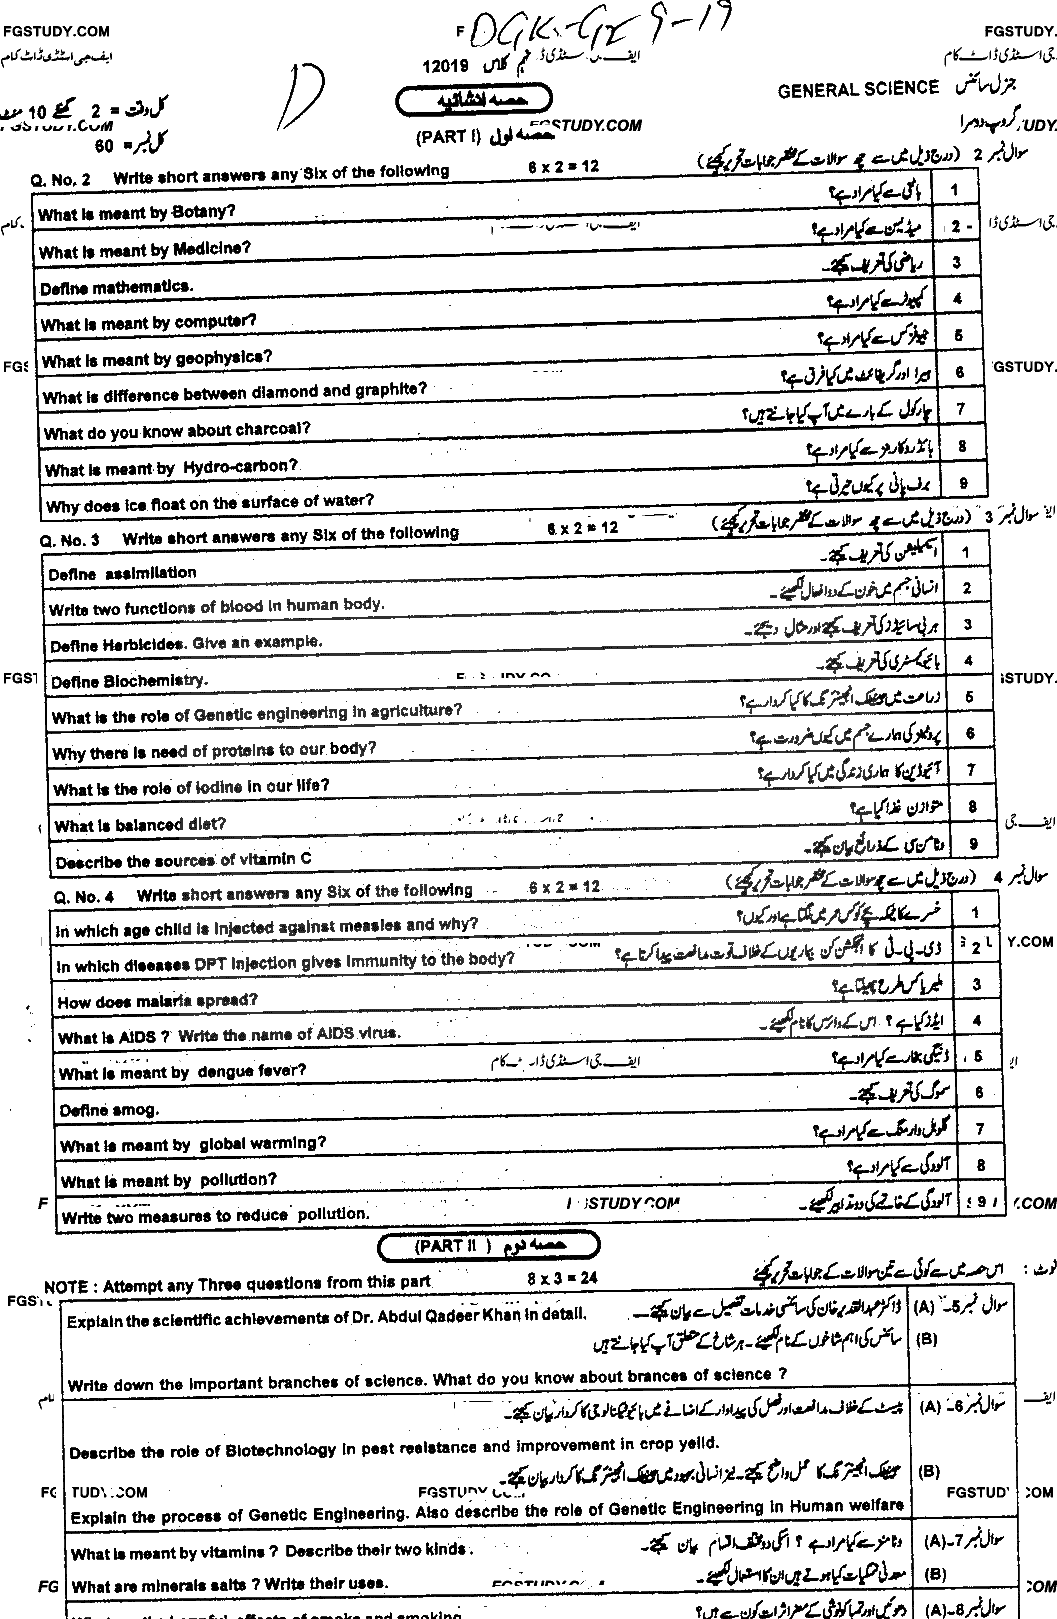 FGSTUDY.COM F DGK-G2-9-19 FGSTUDY.
ایف جی اسٹڈی ڈاٹ کام جی اسٹڈی ڈاٹ کام
12019 نہم کلاس
GENERAL SCIENCE جنرل سائنس
D حصہ انشائیہ
کل وقت = 2 گھنٹے 10 منٹ
FGSTUDY.COM گروپ دوسرا
(PART I) حصہ اول
کل نمبر = 60
Q. No. 2 Write short answers any Six of the following 6 x 2 = 12 سوال نمبر 2 (درج ذیل میں سے چھ سوالات کے مختصر جوابات تحریر کیجئے)
What is meant by Botany? باٹنی سے کیا مراد ہے؟ 1
What is meant by Medicine? میڈیسن سے کیا مراد ہے؟ 2
Define mathematics. ریاضی کی تعریف کیجئے۔ 3
What is meant by computer? کمپیوٹر سے کیا مراد ہے؟ 4
What is meant by geophysics? جیوفزکس سے کیا مراد ہے؟ 5
What is difference between diamond and graphite? ہیرا اور گریفائٹ میں کیا فرق ہے؟ 6
What do you know about charcoal? چارکول کے بارے میں آپ کیا جانتے ہیں؟ 7
What is meant by Hydro-carbon? ہائڈروکاربنز سے کیا مراد ہے؟ 8
Why does ice float on the surface of water? برف پانی پر کیوں تیرتی ہے؟ 9
Q. No. 3 Write short answers any Six of the following 6 x 2 = 12 سوال نمبر 3 (درج ذیل میں سے چھ سوالات کے مختصر جوابات تحریر کیجئے)
Define assimilation اسیمیلیشن کی تعریف کیجئے۔ 1
Write two functions of blood in human body. انسانی جسم میں خون کے دو افعال لکھیئے۔ 2
Define Herbicides. Give an example. ہربی سائیڈز کی تعریف کیجئے اور مثال دیجئے۔ 3
Define Biochemistry. بائیوکیمسٹری کی تعریف کیجئے۔ 4
What is the role of Genetic engineering in agriculture? زراعت میں جینیٹک انجینئرنگ کا کیا کردار ہے؟ 5
Why there is need of proteins to our body? پروٹینز کی ہمارے جسم میں کیوں ضرورت ہے؟ 6
What is the role of iodine in our life? آئیوڈین کا ہماری زندگی میں کیا کردار ہے؟ 7
What is balanced diet? متوازن غذا کیا ہے؟ 8
Describe the sources of vitamin C وٹامن سی کے ذرائع بیان کیجئے۔ 9
Q. No. 4 Write short answers any Six of the following 6 x 2 = 12 سوال نمبر 4 (درج ذیل میں سے چھ سوالات کے مختصر جوابات تحریر کیجئے)
In which age child is injected against measles and why? خسرے کا ٹیکہ بچے کو کس عمر میں لگتا ہے اور کیوں؟ 1
In which diseases DPT injection gives immunity to the body? ڈی۔پی۔ٹی کا انجکشن کن بیماریوں کے خلاف قوت مدافعت پیدا کرتا ہے؟ 2
How does malaria spread? ملیریا کس طرح پھیلتا ہے؟ 3
What is AIDS ? Write the name of AIDS virus. ایڈز کیا ہے؟ اس کے وائرس کا نام لکھیئے۔ 4
What is meant by dengue fever? ایف جی اسٹڈی ڈاٹ کام ڈینگی بخار سے کیا مراد ہے؟ 5
Define smog. سموگ کی تعریف کیجئے۔ 6
What is meant by global warming? گلوبل وارمنگ سے کیا مراد ہے؟ 7
What is meant by pollution? آلودگی سے کیا مراد ہے؟ 8
Write two measures to reduce pollution. آلودگی کے خاتمے کی دو تدابیر لکھیئے۔ 9
(PART II ) حصہ دوم
NOTE : Attempt any Three questions from this part 8 x 3 = 24 نوٹ : اس حصہ میں سے کوئی سے تین سوالات کے جوابات تحریر کیجئے
Explain the scientific achievements of Dr. Abdul Qadeer Khan in detail. ڈاکٹر عبدالقدیر خان کی سائنسی خدمات تفصیل سے بیان کیجئے۔ (A) سوال نمبر 5۔
سائنس کی اہم شاخوں کے نام لکھیئے۔ ہر شاخ کے متعلق آپ کیا جانتے ہیں (B)
Write down the important branches of science. What do you know about brances of science ?
پیسٹ کے خلاف مدافعت اور فصل کی پیداوار کے اضافے میں بائیوٹیکنالوجی کا کردار بیان کیجئے۔ (A) سوال نمبر 6۔
Describe the role of Biotechnology in pest reeistance and improvement in crop yeild.
جینیٹک انجینئرنگ کا عمل واضح کیجئے۔ نیز انسانی بہبود میں جینیٹک انجینئرنگ کا کردار بیان کیجئے۔ (B)
Explain the process of Genetic Engineering. Also describe the role of Genetic Engineering in Human welfare
What is meant by vitamins ? Describe their two kinds. وٹامنز سے کیا مراد ہے؟ انکی دو مختلف اقسام بیان کیجئے۔ (A) سوال نمبر 7۔
What are minerals salts ? Write their uses. معدنی نمکیات کیا ہوتے ہیں ان کا استعمال لکھیئے۔ (B)
effects of smoke and smoking دھوئیں اور تمباکونوشی کے مضر اثرات کون سے ہیں؟ (A) سوال نمبر 8۔